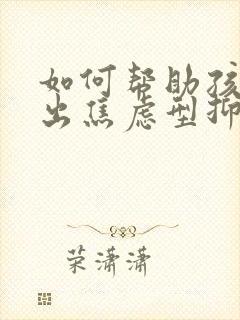 如何帮助孩
出焦虑型抑
荣潇潇